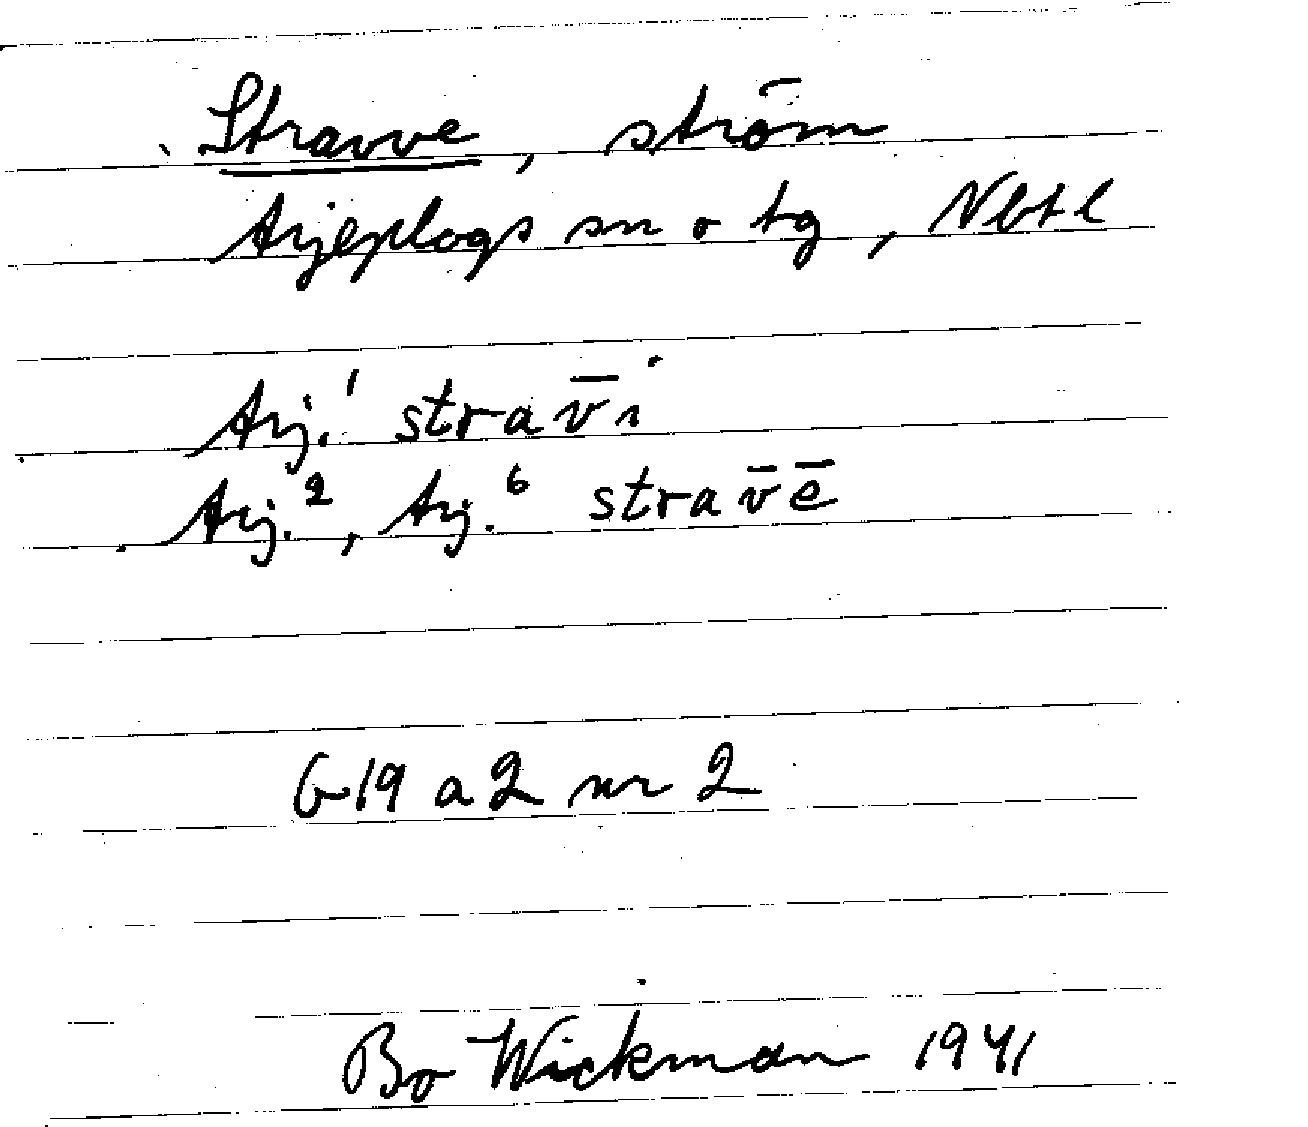 Stravve, ström
Arjeplogs sn o tg, Nbtl
Arj.¹ strav̄i
Arj.², Arj.⁶ strav̄ē
G 19 a 2 nr 2
Bo Wickman 1941